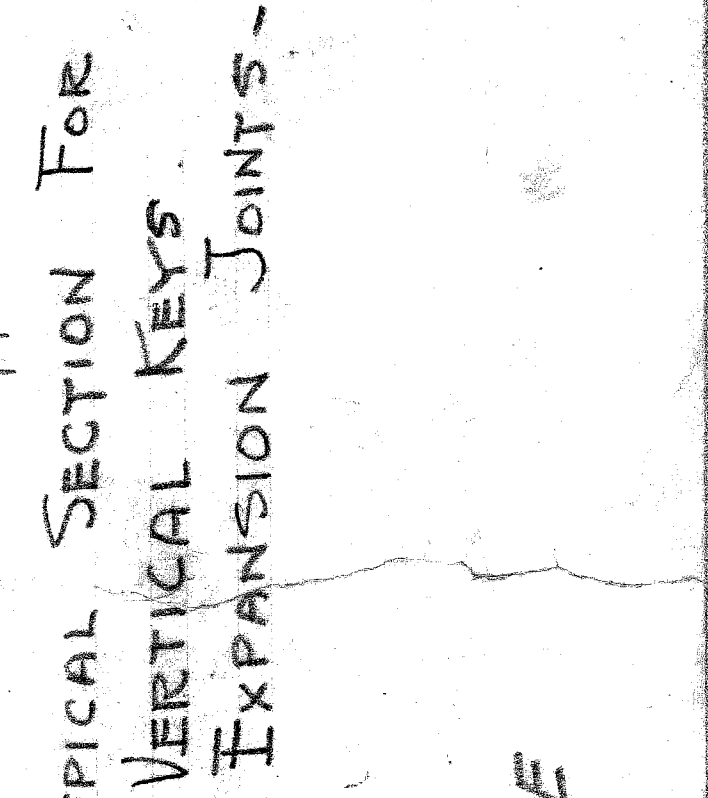 PICAL SECTION FOR
VERTICAL KEYS
EXPANSION JOINTS-